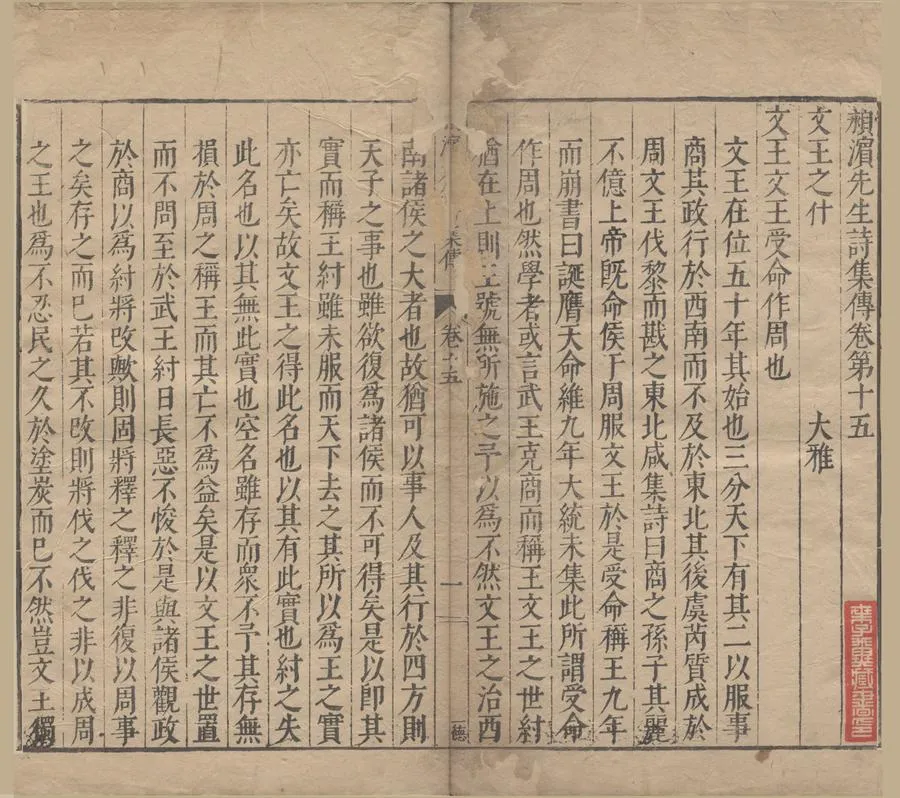 潁濱先生詩集傳卷第十五
文王之什 大雅
文王文王受命作周也
文王在位五十年其始也三分天下有其二以服事
商其政行於西南而不及於東北其後虞芮質成於
周文王伐黎而戡之東北咸集詩曰商之孫子其麗
不億上帝既命侯于周服文王於是受命稱王九年
而崩書曰誕膺天命維九年大統未集此所謂受命
作周也然學者或言武王克商而稱王文王之世紂
猶在上則王號無所施之予以為不然文王之治西
卷十五
一
德
南諸侯之大者也故猶可以事人及其行於四方則
天子之事也雖欲復為諸侯而不可得矣是以即其
實而稱王紂雖未服而天下去之其所以為王之實
亦亡矣故文王之得此名也以其有此實也紂之失
此名也以其無此實也空名雖存而衆不予其存無
損於周之稱王而其亡不為益矣是以文王之世置
而不問至於武王紂日長惡不悛於是與諸侯觀政
於商以為紂將改歟則固將釋之釋之非復以周事
之矣存之而已若其不改則將伐之伐之非以成周
之王也為不忍民之久於塗炭而已不然豈文王獨